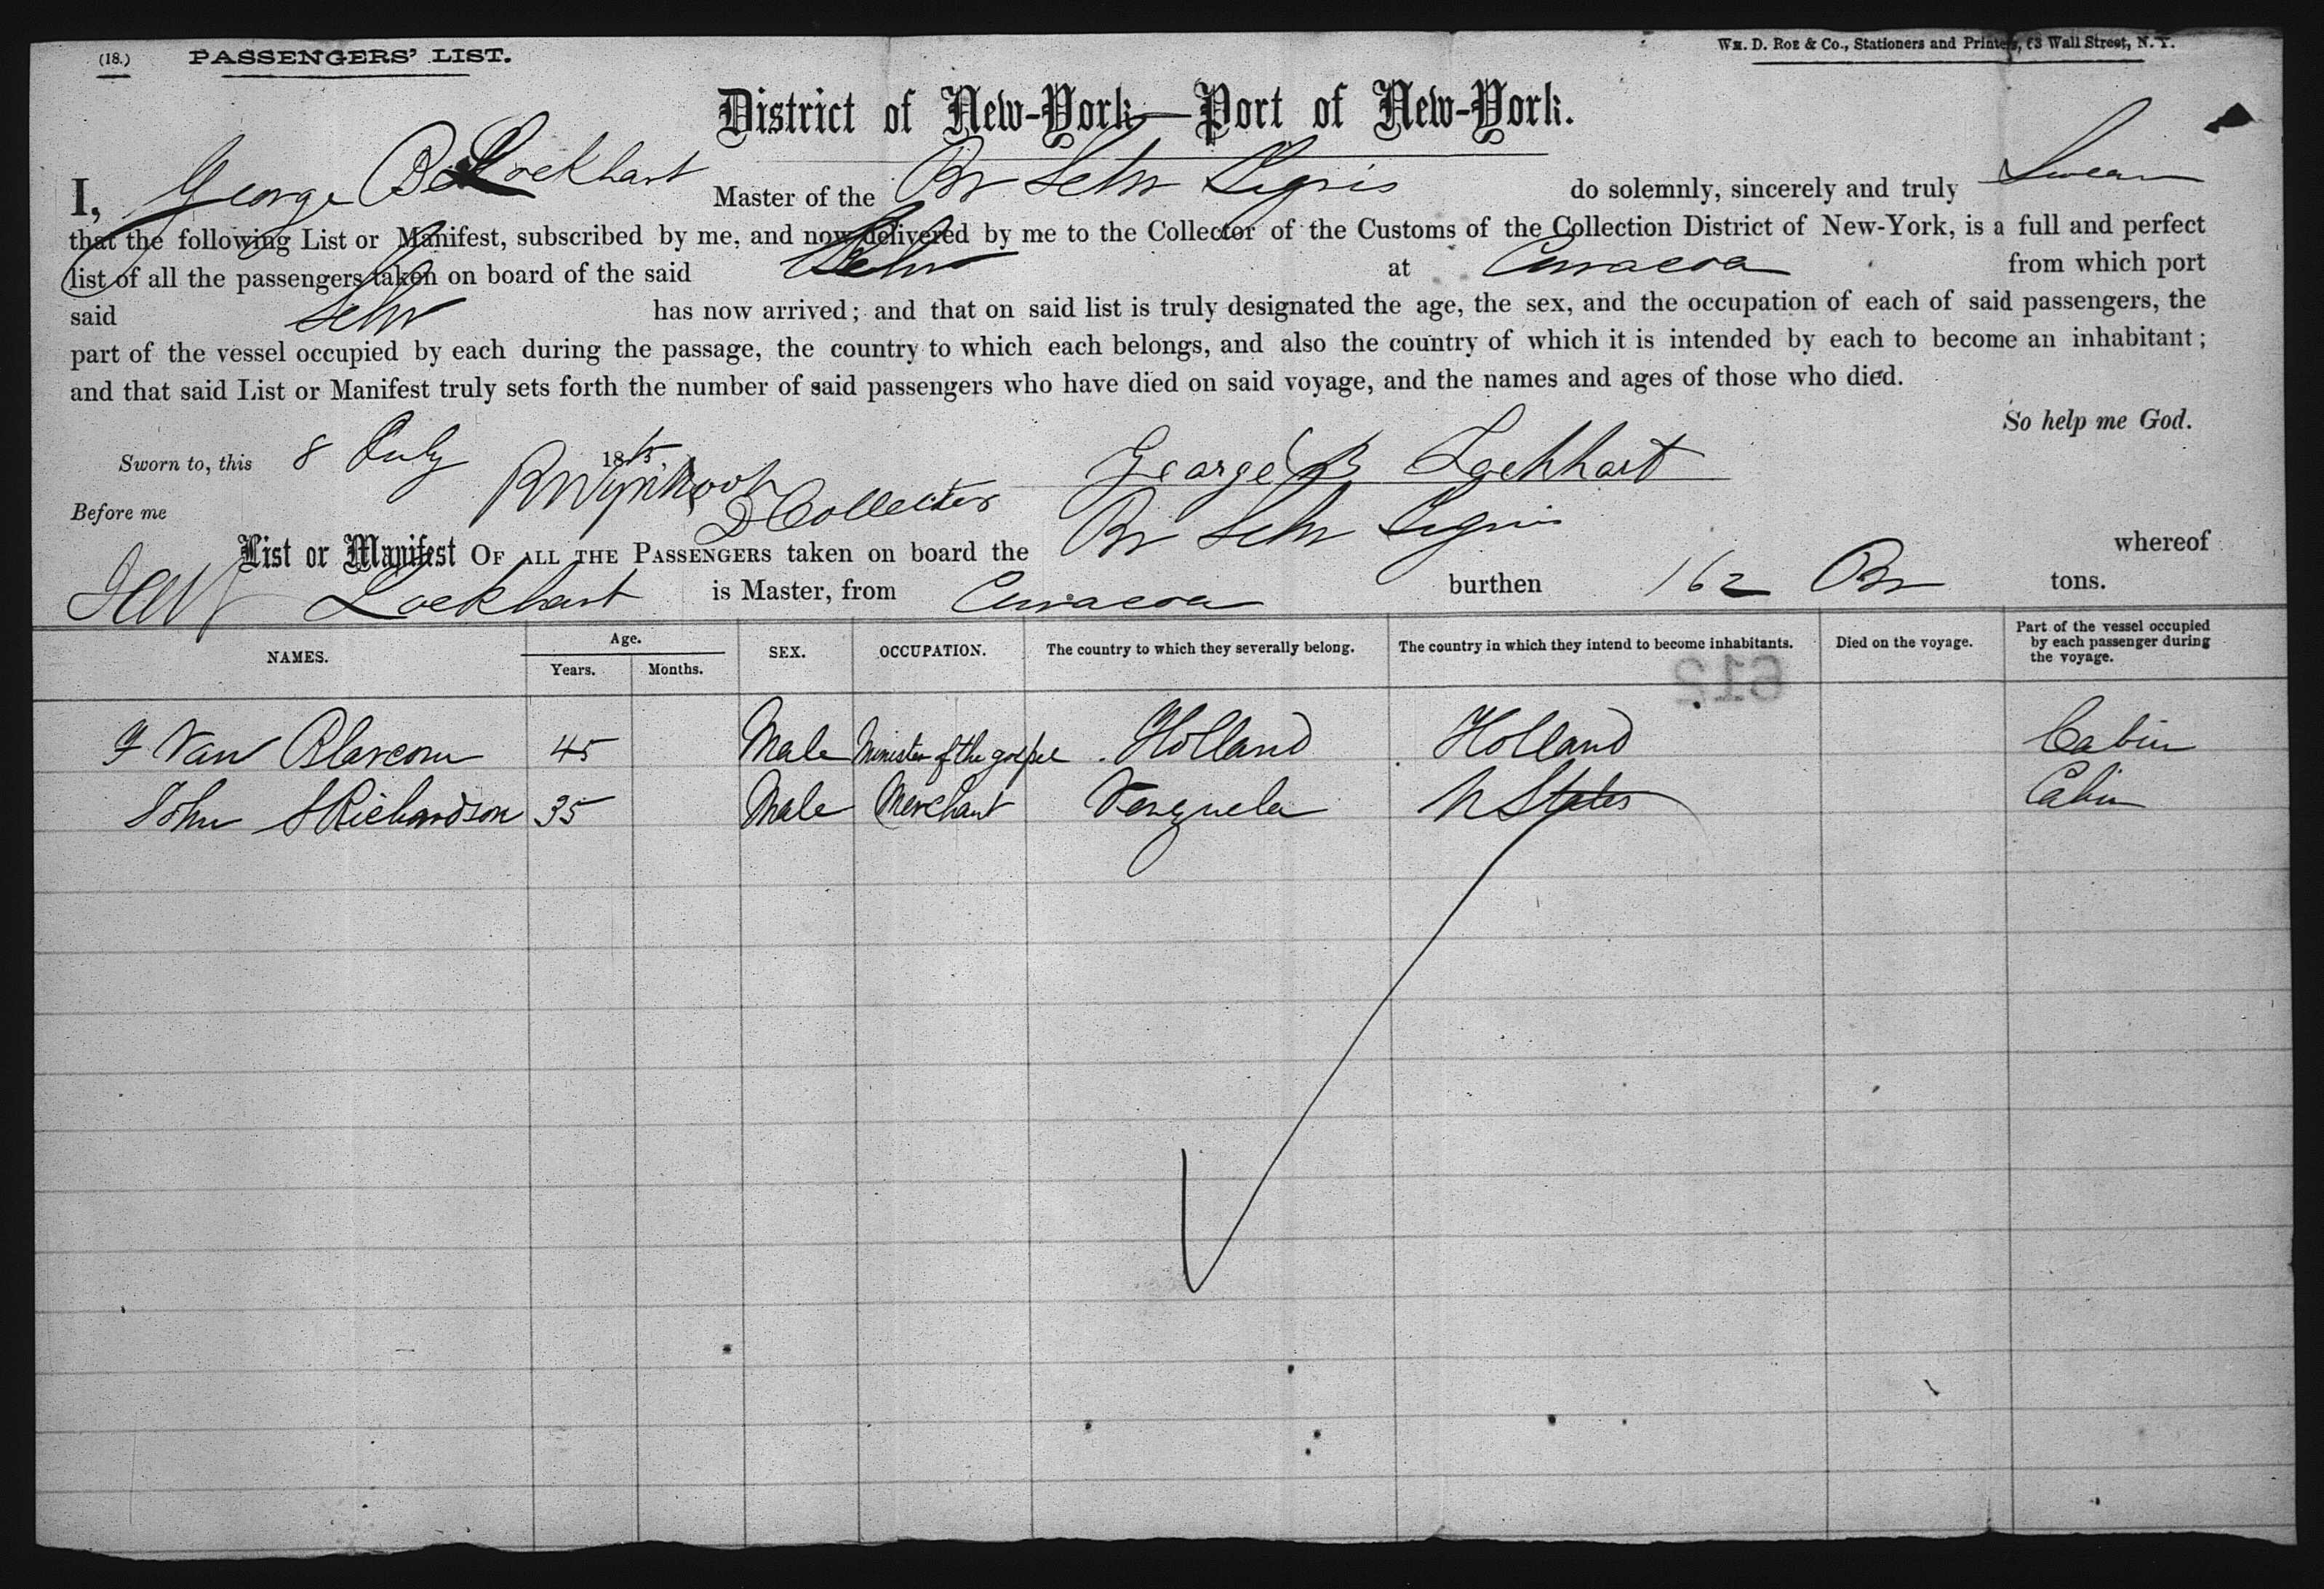 (18.) PASSENGERS' LIST.
WM. D. ROE & CO., Stationers and Printers, 63 Wall Street, N. Y.
District of New-York—Port of New-York.
I, George B Lockhart Master of the Br Schr Tigris do solemnly, sincerely and truly Swear
that the following List or Manifest, subscribed by me, and now delivered by me to the Collector of the Customs of the Collection District of New-York, is a full and perfect
list of all the passengers taken on board of the said Schr at Curacoa from which port
said Schr has now arrived; and that on said list is truly designated the age, the sex, and the occupation of each of said passengers, the
part of the vessel occupied by each during the passage, the country to which each belongs, and also the country of which it is intended by each to become an inhabitant;
and that said List or Manifest truly sets forth the number of said passengers who have died on said voyage, and the names and ages of those who died.
So help me God.
Sworn to, this 8 July 18 George B Lockhart
Before me D Collector
List or Manifest OF ALL THE PASSENGERS taken on board the Br Schr Tigris whereof
Lockhart is Master, from Curacoa burthen 162 tons.
NAMES. Age. Years. Months. SEX. OCCUPATION. The country to which they severally belong. The country in which they intend to become inhabitants. Died on the voyage. Part of the vessel occupied by each passenger during the voyage.
612
F Van Blarcom 45 Male Minister of the gospel Holland Holland Cabin
John S Richardson 35 Male Merchant Venzuela U States Cabin